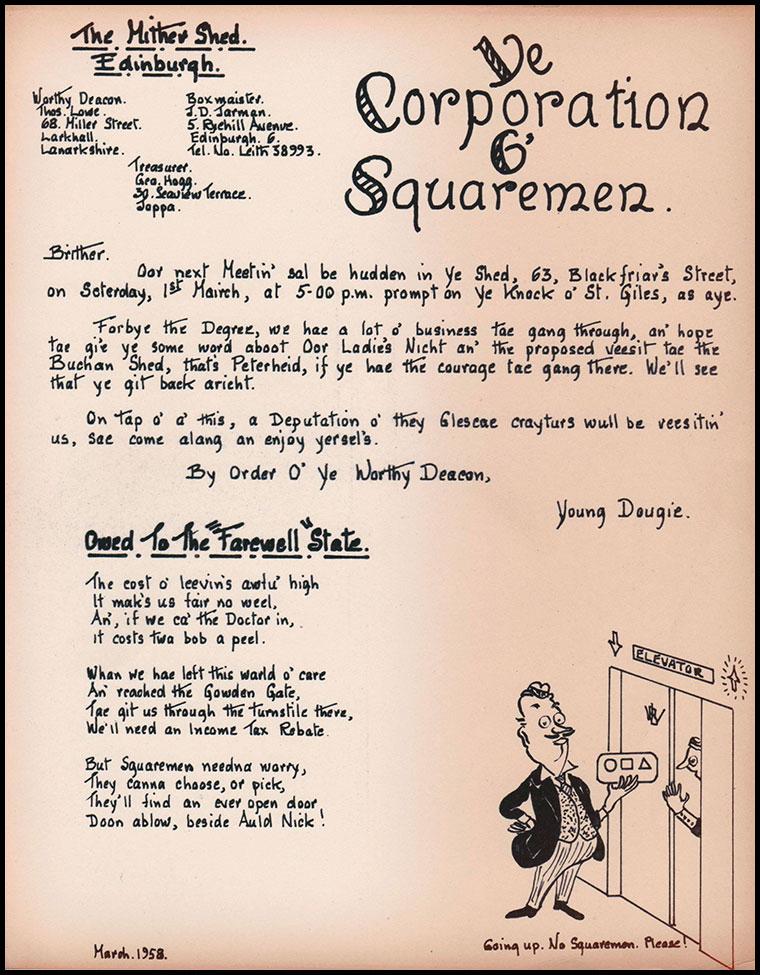 The Mither Shed.
Edinburgh.
Worthy Deacon.
Thos. Lowe.
68. Miller Street.
Larkhall.
Lanarkshire.
Boxmaister.
J.D. Jarman.
5. Ryehill Avenue.
Edinburgh. 6.
Tel. No. Leith 38993.
Treasurer.
Geo. Hogg.
30. Seaview Terrace.
Joppa.
Ye
Corporation
O'
Squaremen.
Brither.
Oor next Meetin' sal be hudden in Ye Shed, 63, Blackfriar's Street,
on Seterday, 1st Mairch, at 5-00 p.m. prompt on Ye Knock o' St. Giles, as aye.
Forbye the Degree, we hae a lot o' business tae gang through, an' hope
tae gi'e ye some word aboot Oor Ladie's Nicht an' the proposed veesit tae the
Buchan Shed, that's Peterheid, if ye hae the courage tae gang there. We'll see
that ye git back aricht.
On tap o' a' this, a Deputation o' they Glescae crayturs wull be veesitin'
us, sae come alang an enjoy yersel's.
By Order O' Ye Worthy Deacon,
Young Dougie.
Owed To The "Farewell" State.
The cost o' leevin's awfu' high
It mak's us fair no weel,
An', if we ca' the Doctor in,
it costs twa bob a peel.
Whan we hae left this warld o' care
An' reached the Gowden Gate,
Tae git us through the turnstile there,
We'll need an Income Tax Rebate.
But Squaremen needna worry,
They canna choose, or pick,
They'll find an ever open door
Doon ablow, beside Auld Nick!
ELEVATOR
Going up. No Squaremen. Please!
March. 1958.